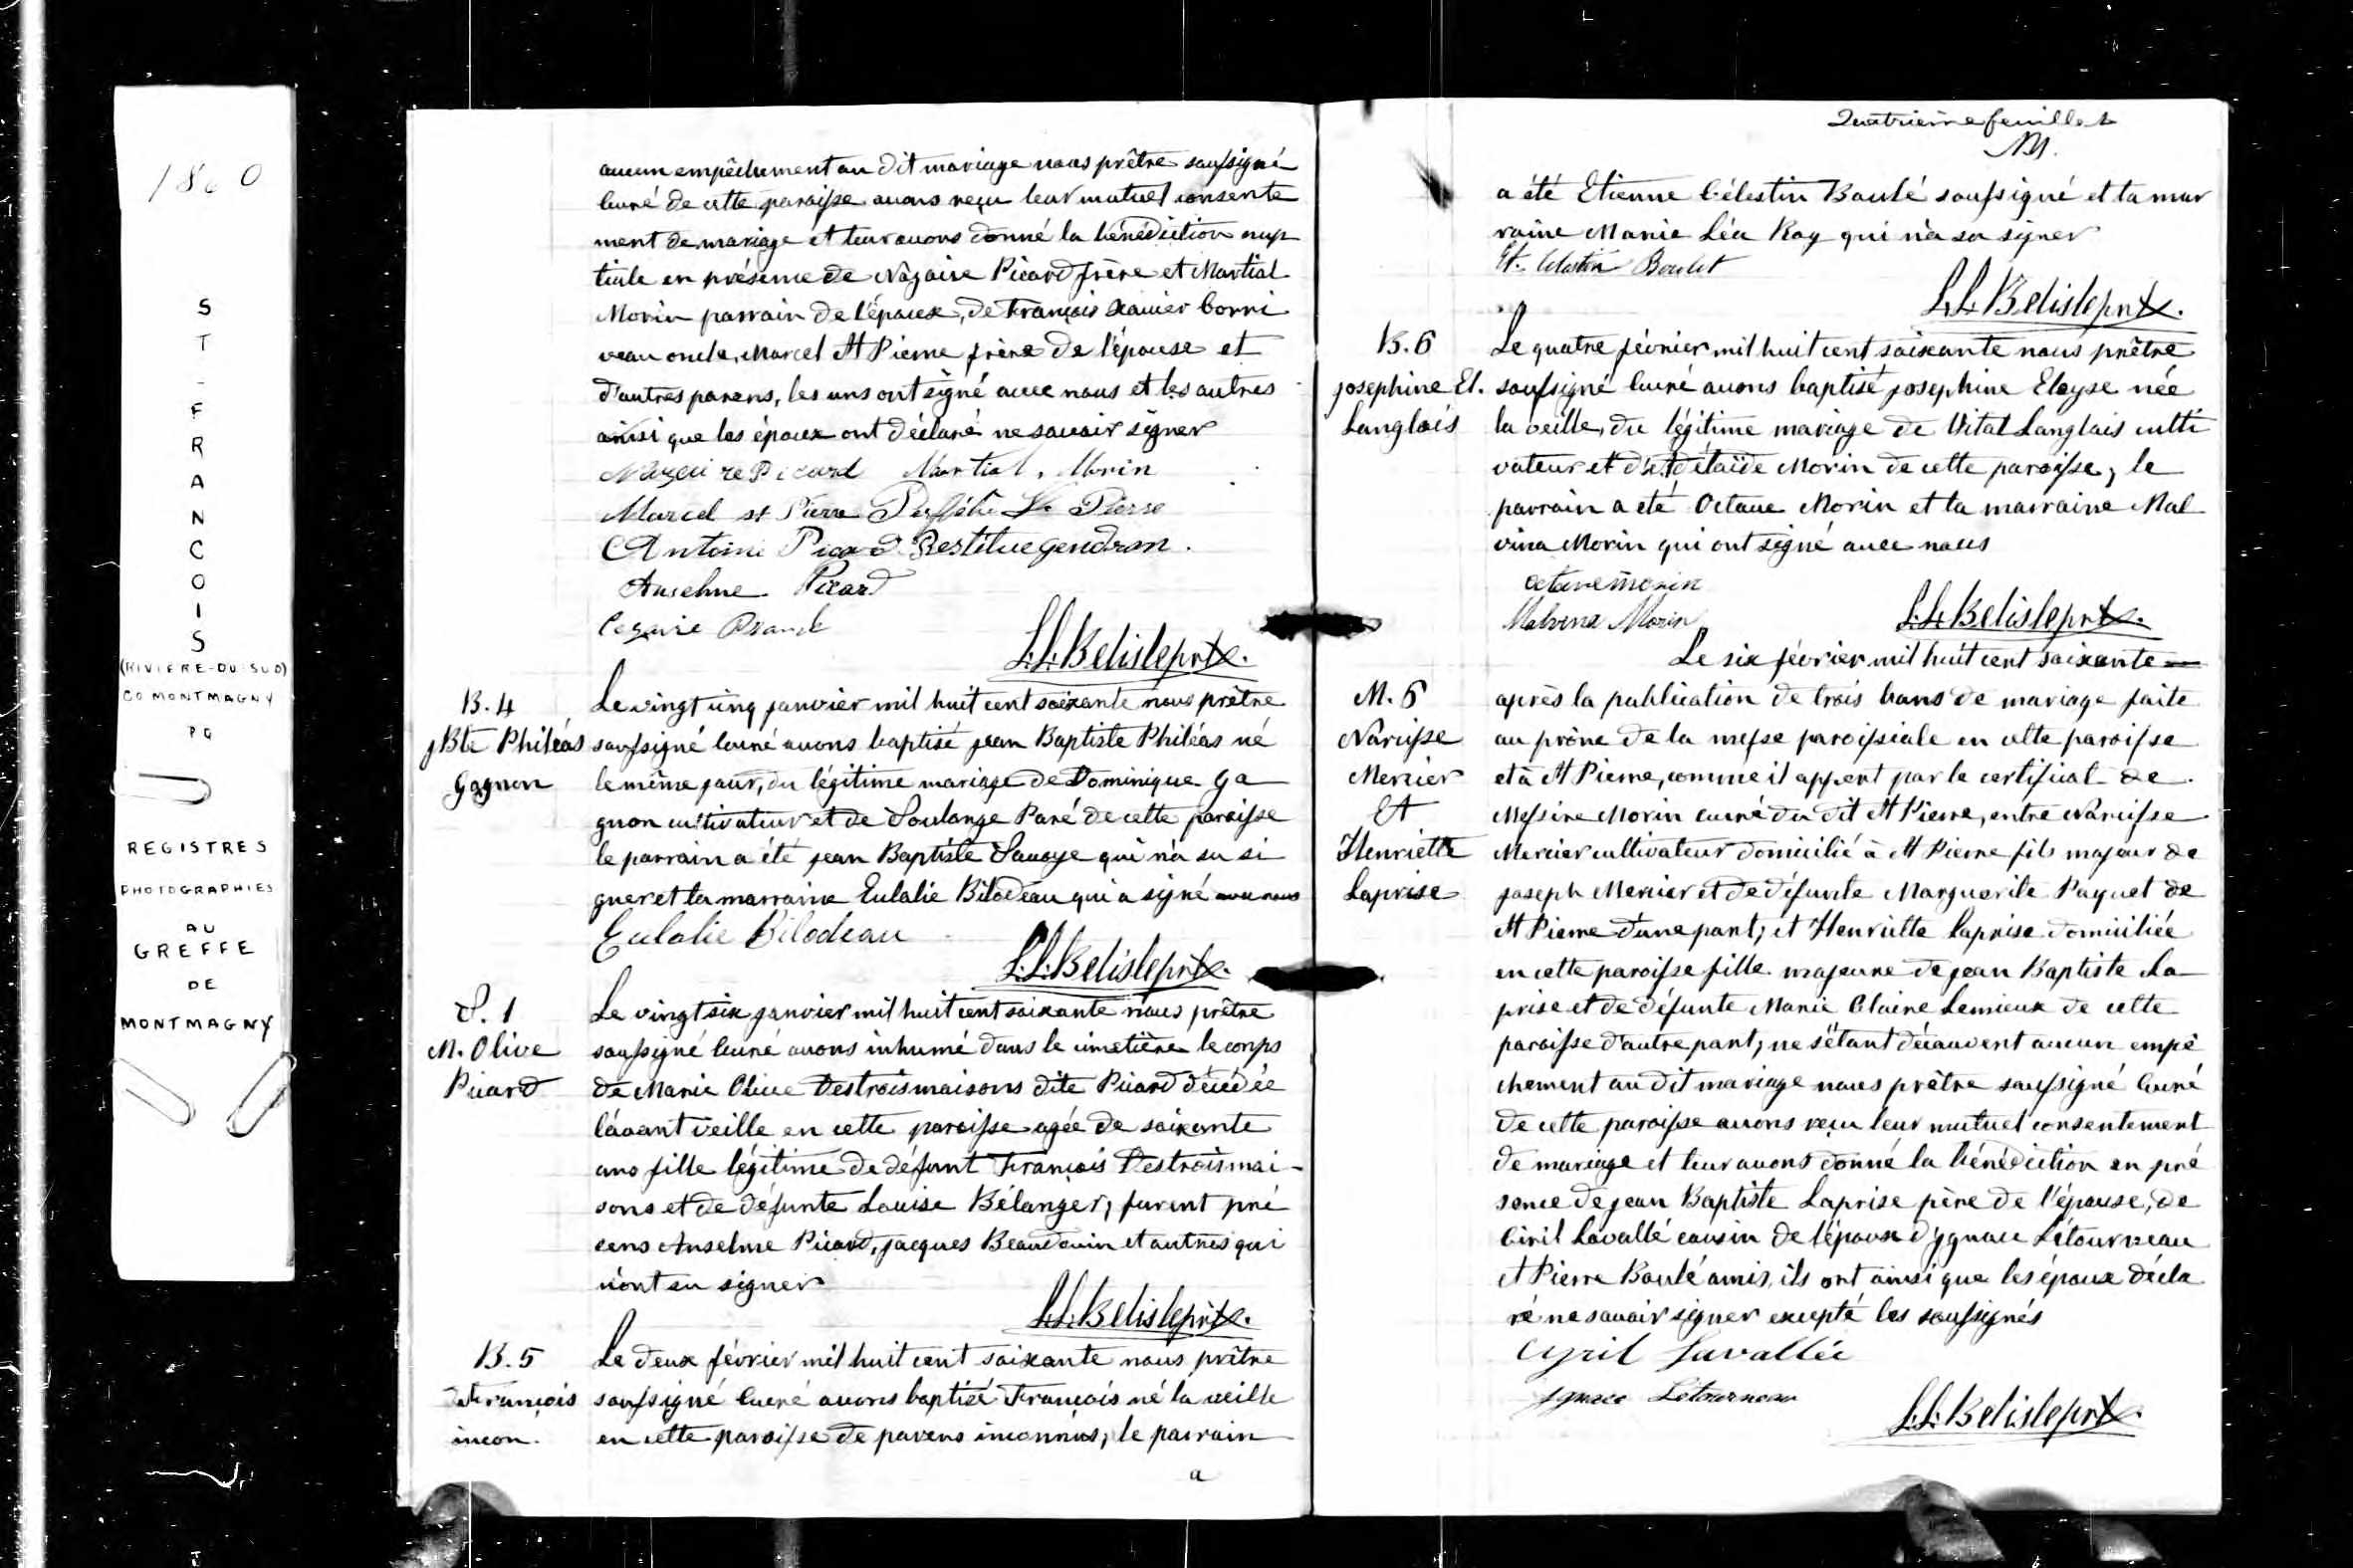 1860
ST-FRANCOIS
(RIVIERE-DU-SUD)
CO MONTMAGNY
PQ
REGISTRES
PHOTOGRAPHIES
AU
GREFFE
DE
MONTMAGNY
aucun empêchement au dit mariage nous prêtre soussigné
curé de cette paroisse avons reçu leur mutuel consente
ment de mariage et leur avons donné la bénédiction nup
tiale en présence de Nazaire Picard frère et Martial
Morin parrain de l'époux, de François Xavier Corri
veau oncle, Marcel St Pierre frère de l'épouse et
d'autres parens, les uns ont signé avec nous et les autres
ainsi que les époux ont déclaré ne savoir signer
Nazaire Picard Martial Morin
Marcel st Pierre St Pierre
Antoine Picard Restitue gendron.
Anselme Picard
Cesaire
L.L. Belisle ptre.
B. 4
J Bte Philéas
Gagnon
Le vingt cinq janvier mil huit cent soixante nous prêtre
soussigné curé avons baptisé jean Baptiste Philéas né
le même jour, du légitime mariage de Dominique Ga
gnon cultivateur et de Soulange Paré de cette paroisse
le parrain a été jean Baptiste Savoye qui n'a su si
gner et la marraine Eulalie Bilodeau qui a signé avec nous
Eulalie Bilodeau
L.L. Belisle ptre.
S. 1
M. Olive
Picard
Le vingt six janvier mil huit cent soixante nous prêtre
soussigné curé avons inhumé dans le cimetière le corps
de Marie Olive Destroismaisons dite Picard décédée
l'avant veille en cette paroisse agée de soixante
ans fille légitime de défunt François Destroismai-
sons et de défunte Louise Bélanger, furent pré
cens Anselme Picard, jacques Beaudouin et autres qui
n'ont su signer
L.L. Belisle ptre.
B. 5
François
incon.
Le deux février mil huit cent soixante nous prêtre
soussigné curé avons baptisé François né la veille
en cette paroisse de parens inconnus, le parrain
a
Quatrieme feuillet
a été Etienne Célestin Boulé soussigné et la mar
raine Marie Léa Roy qui n'a su signer
Et. Celestin Boulet
L.L. Belisle ptre.
B. 6
josephine El.
Langlois
Le quatre février mil huit cent soixante nous prêtre
soussigné curé avons baptisé josephine Eloyse née
la veille, du légitime mariage de Vital Langlais culti
vateur et d'Adélaïde Morin de cette paroisse, le
parrain a été Octave Morin et la marraine Mal
vina Morin qui ont signé avec nous
Octave morin
Malvina Morin
L.L. Belisle ptre.
Le six février mil huit cent soixante
M. 6
Narcisse
Mercier
Et
Henriette
Laprise
après la publication de trois bans de mariage faite
au prône de la messe paroissiale en cette paroisse
et à St Pierre, comme il appert par le certificat de
Messire Morin curé du dit St Pierre, entre Narcisse
Mercier cultivateur domicilié à St Pierre fils majeur de
joseph Mercier et de défunte Marguerite Paquet de
St Pierre d'une part; et Henriette Laprise domiciliée
en cette paroisse fille majeure de jean Baptiste La
prise et de défunte Marie Claire Lemieux de cette
paroisse d'autre part, ne s'étant découvert aucun empê
chement au dit mariage nous prêtre soussigné curé
de cette paroisse avons reçu leur mutuel consentement
de mariage et leur avons donné la bénédiction en pré
sence de jean Baptiste Laprise père de l'épouse, de
Ciril Lavallé cousin de l'époux d'ygnace Létourneau
et Pierre Boulé amis, ils ont ainsi que les époux décla
ré ne savoir signer excepté les soussignés
Cyril Lavallée
Ignace Letourneau
L.L. Belisle ptre.